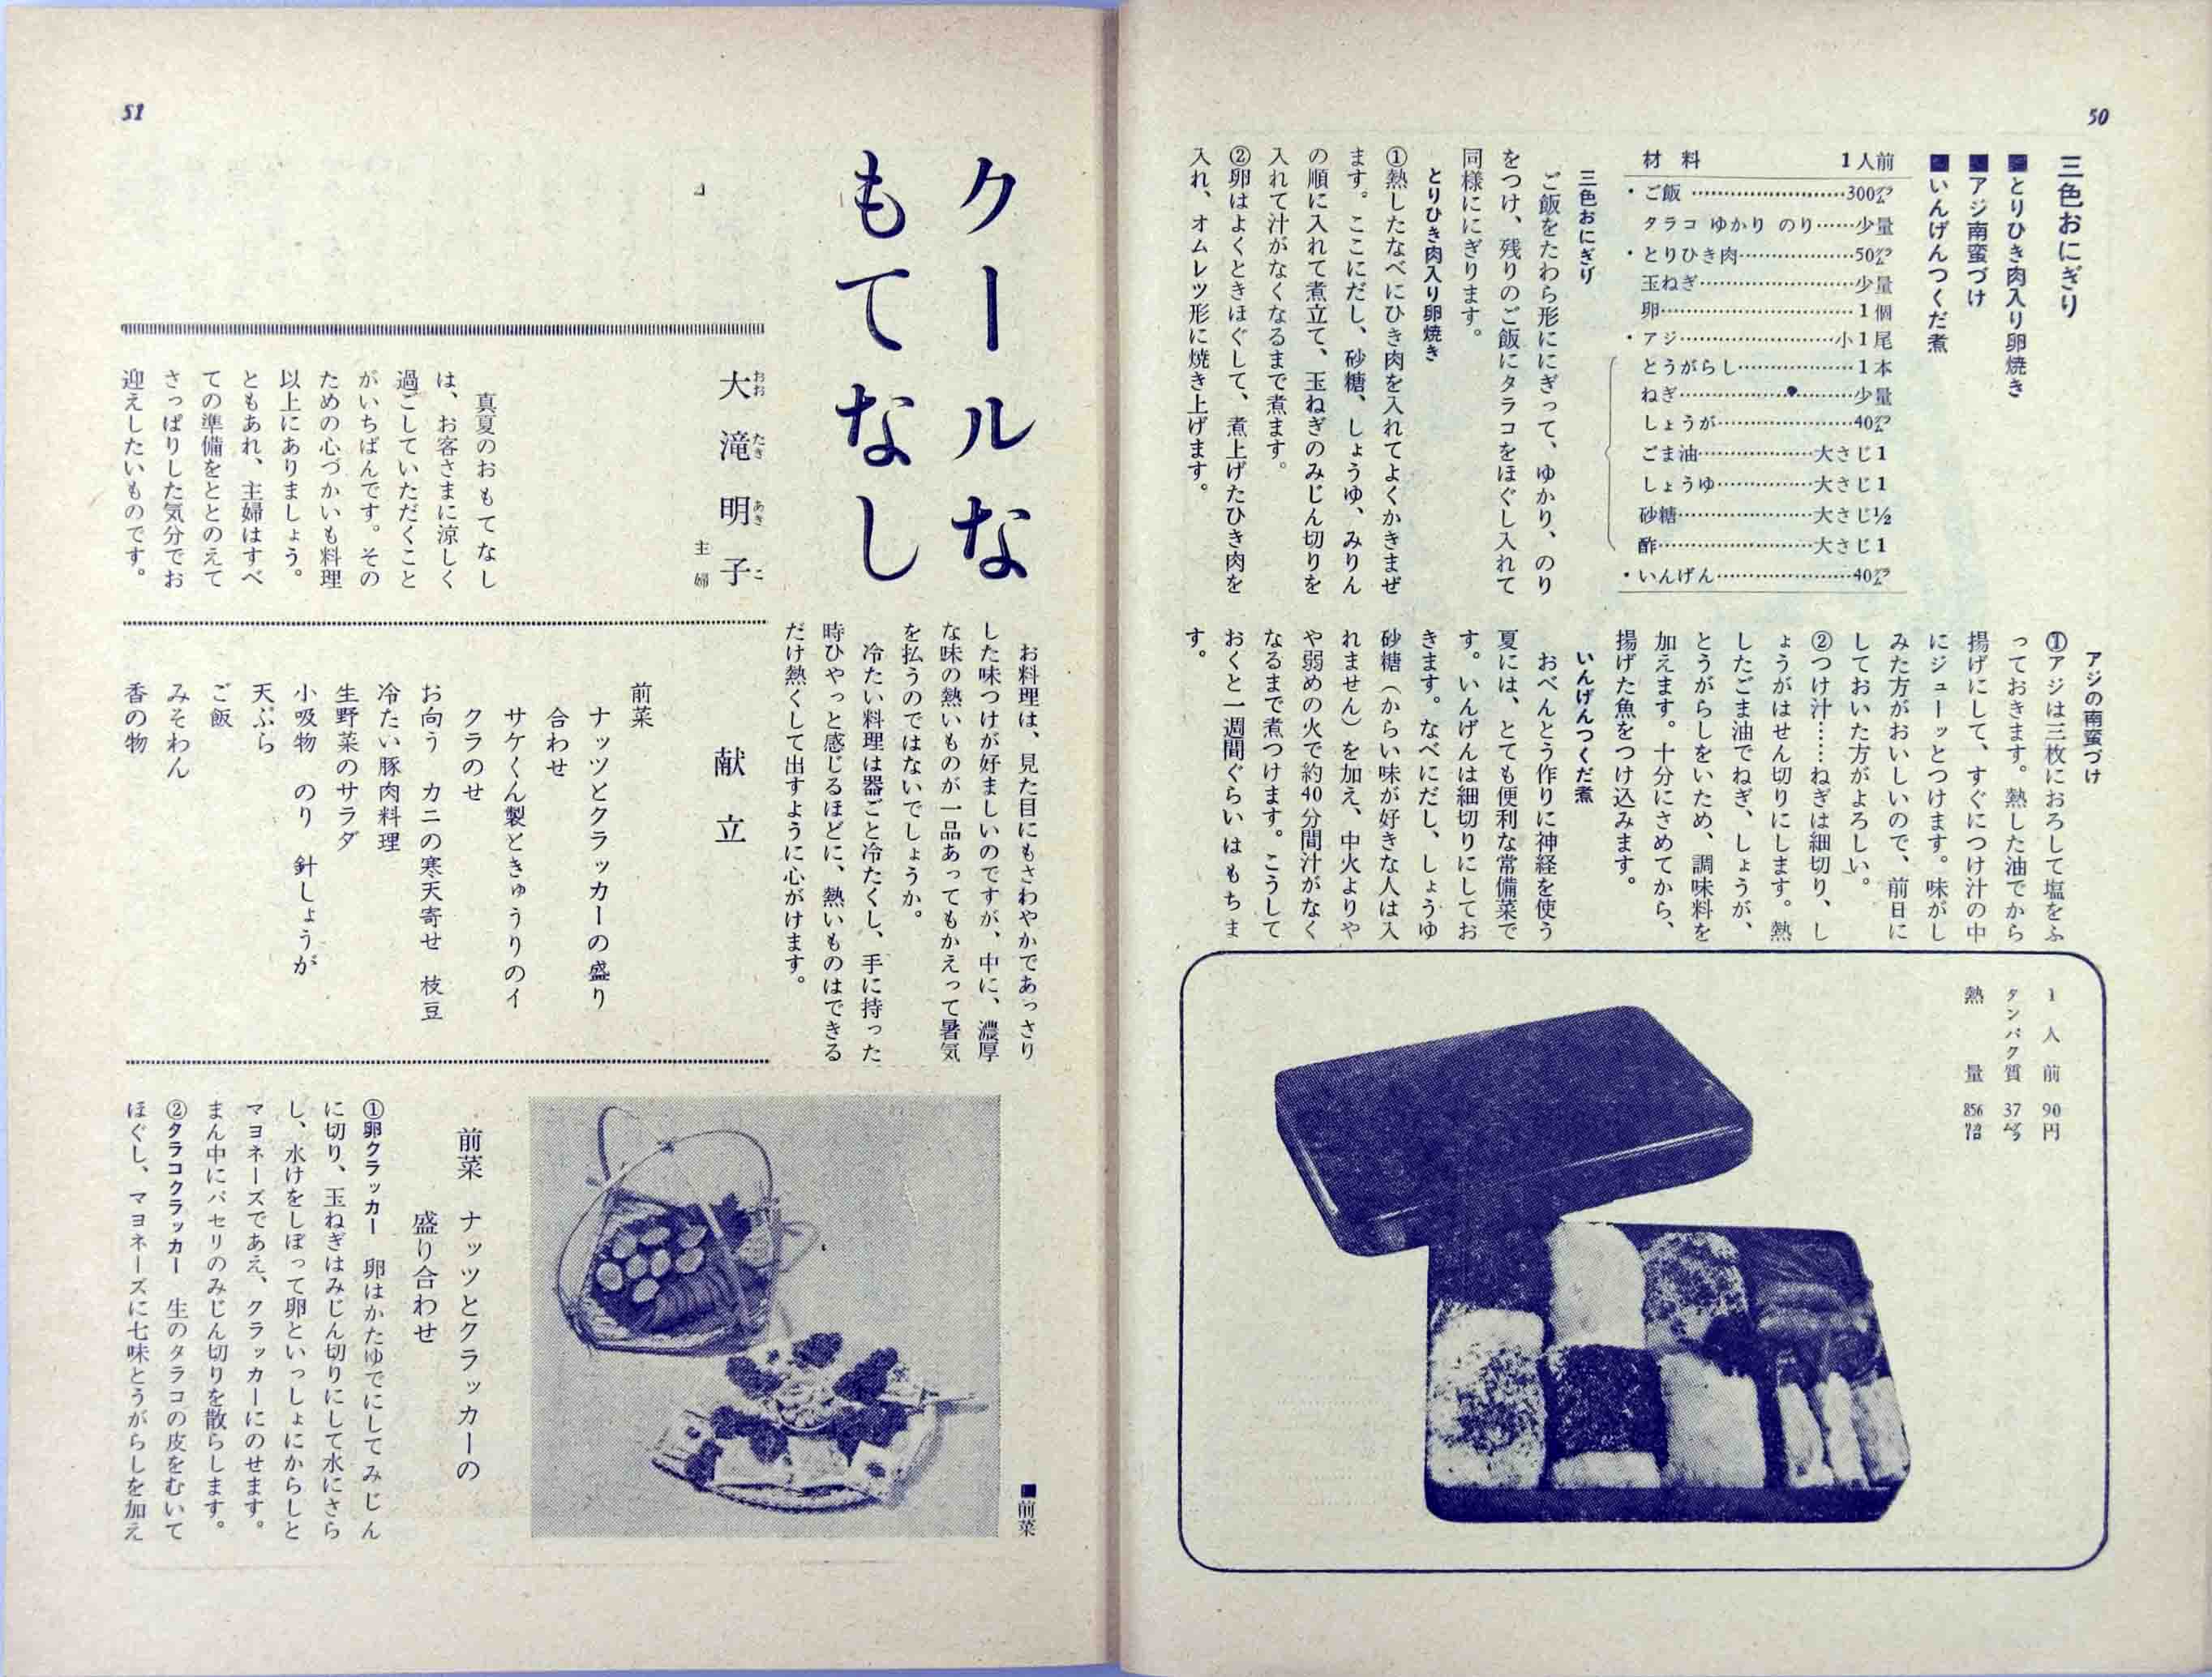 50
三色おにぎり
■とりひき肉入り卵焼き
■アジ南蛮づけ
■いんげんつくだ煮
材料 1人前
・ご飯……………………300グラム
タラコ ゆかり のり……少量
・とりひき肉………………50グラム
玉ねぎ……………………少量
卵…………………………1個
・アジ……………………小1尾
とうがらし………………1本
ねぎ………………………少量
しょうが…………………40グラム
ごま油………………大さじ1
しょうゆ……………大さじ1
砂糖…………………大さじ½
酢……………………大さじ1
・いんげん…………………40グラム
三色おにぎり
ご飯をたわら形ににぎって、ゆかり、のり
をつけ、残りのご飯にタラコをほぐし入れて
同様ににぎります。
とりひき肉入り卵焼き
①熱したなべにひき肉を入れてよくかきまぜ
ます。ここにだし、砂糖、しょうゆ、みりん
の順に入れて煮立て、玉ねぎのみじん切りを
入れて汁がなくなるまで煮ます。
②卵はよくときほぐして、煮上げたひき肉を
入れ、オムレツ形に焼き上げます。
アジの南蛮づけ
①アジは三枚におろして塩をふ
っておきます。熱した油でから
揚げにして、すぐにつけ汁の中
にジューッとつけます。味がし
みた方がおいしいので、前日に
しておいた方がよろしい。
②つけ汁……ねぎは細切り、し
ょうがはせん切りにします。熱
したごま油でねぎ、しょうが、
とうがらしをいため、調味料を
加えます。十分にさめてから、
揚げた魚をつけ込みます。
いんげんつくだ煮
おべんとう作りに神経を使う
夏には、とても便利な常備菜で
す。いんげんは細切りにしてお
きます。なべにだし、しょうゆ
砂糖（からい味が好きな人は入
れません）を加え、中火よりや
や弱めの火で約40分間汁がなく
なるまで煮つけます。こうして
おくと一週間ぐらいはもちま
す。
1人前 90円
タンパク質 37グラム
熱量 856カロリー
51
クールな
もてなし
大滝明子
おおたきあきこ
主婦
真夏のおもてなし
は、お客さまに涼しく
過ごしていただくこと
がいちばんです。その
ための心づかいも料理
以上にありましょう。
ともあれ、主婦はすべ
ての準備をととのえて
さっぱりした気分でお
迎えしたいものです。
お料理は、見た目にもさわやかであっさり
した味つけが好ましいのですが、中に、濃厚
な味の熱いものが一品あってもかえって暑気
を払うのではないでしょうか。
冷たい料理は器ごと冷たくし、手に持った
時ひやっと感じるほどに、熱いものはできる
だけ熱くして出すように心がけます。
献立
前菜
ナッツとクラッカーの盛り
合わせ
サケくん製ときゅうりのイ
クラのせ
お向う カニの寒天寄せ 枝豆
冷たい豚肉料理
生野菜のサラダ
小吸物 のり 針しょうが
天ぷら
ご飯
みそわん
香の物
■前菜
前菜 ナッツとクラッカーの
盛り合わせ
①卵クラッカー 卵はかたゆでにしてみじん
に切り、玉ねぎはみじん切りにして水にさら
し、水けをしぼって卵といっしょにからしと
マヨネーズであえ、クラッカーにのせます。
まん中にパセリのみじん切りを散らします。
②タラコクラッカー 生のタラコの皮をむいて
ほぐし、マヨネーズに七味とうがらしを加え